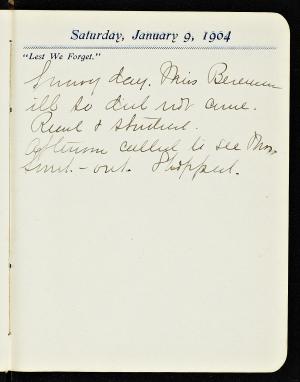 Saturday, January 9, 1904
"Lest We Forget."
Sunny day. Miss
ill so did not come.
Read & studied.
Afternoon called to see Mrs.
- out. Shopped.